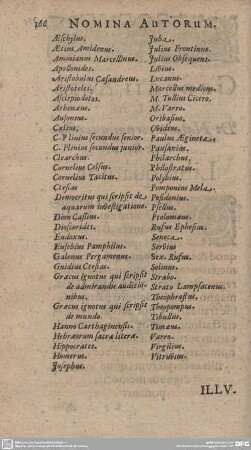 160 NOMINA AUTORUM.
Æschilus.
Ætius Amidenus.
Ammianus Marcellinus.
Apollonides.
Aristobulus Casandreus.
Aristoteles.
Asclepiodotus.
Athenæus.
Ausonius.
Cælius.
C. Plinius secundus senior.
C. Plinius secundus junior.
Clearchus.
Cornelius Celsus.
Cornelius Tacitus.
Ctesias
Democritus qui scripsit de
aquarum inbestigatione.
Dion Cassius.
Dioscorides.
Eudoxus.
Eusebius Pamphilus.
Galenus Pergamenus.
Gnidius Ctesias.
Græcus ignotus qui scripsit
de admirandis auditio-
nibus.
Græcus ignotus qui scripsit
de mundo.
Hanno Carthaginensis.
Hebræorum sacræ literæ.
Hippocrates.
Homerus.
Josephus.
Juba.
Julius Frontinus.
Julius Obsequens.
Livius.
Lucanus.
Marcellus medicus.
M. Tullius Cicero.
M. Varro.
Oribasius.
Ovidius.
Paulus Ægineta.
Pausanias.
Philarchus.
Philostratus.
Polybius.
Pomponius Mela.
Posidonius.
Psellus.
Ptolomæus.
Rufus Ephesius.
Seneca.
Serbius
Sex. Rufus.
Solinus.
Strabo.
Strato Lampsacenus.
Theophrastus.
Theopompus.
Tibullus.
Timæus.
Varro.
Virgilius.
Vitrubius.
ILLV.
DFG